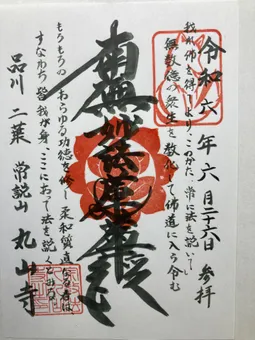 令和六年六月二十六日 参拝
我れ佛を得てよりこのかた、常に法を説いて
無数億の衆生を教化して佛道に入らむ
南無妙法蓮華経
もろもろの あらゆる功徳を修し 柔和質直なる者は
すなわち 皆 我が身、ここにあって法を説くと
品川 二葉 常説山 丸山寺